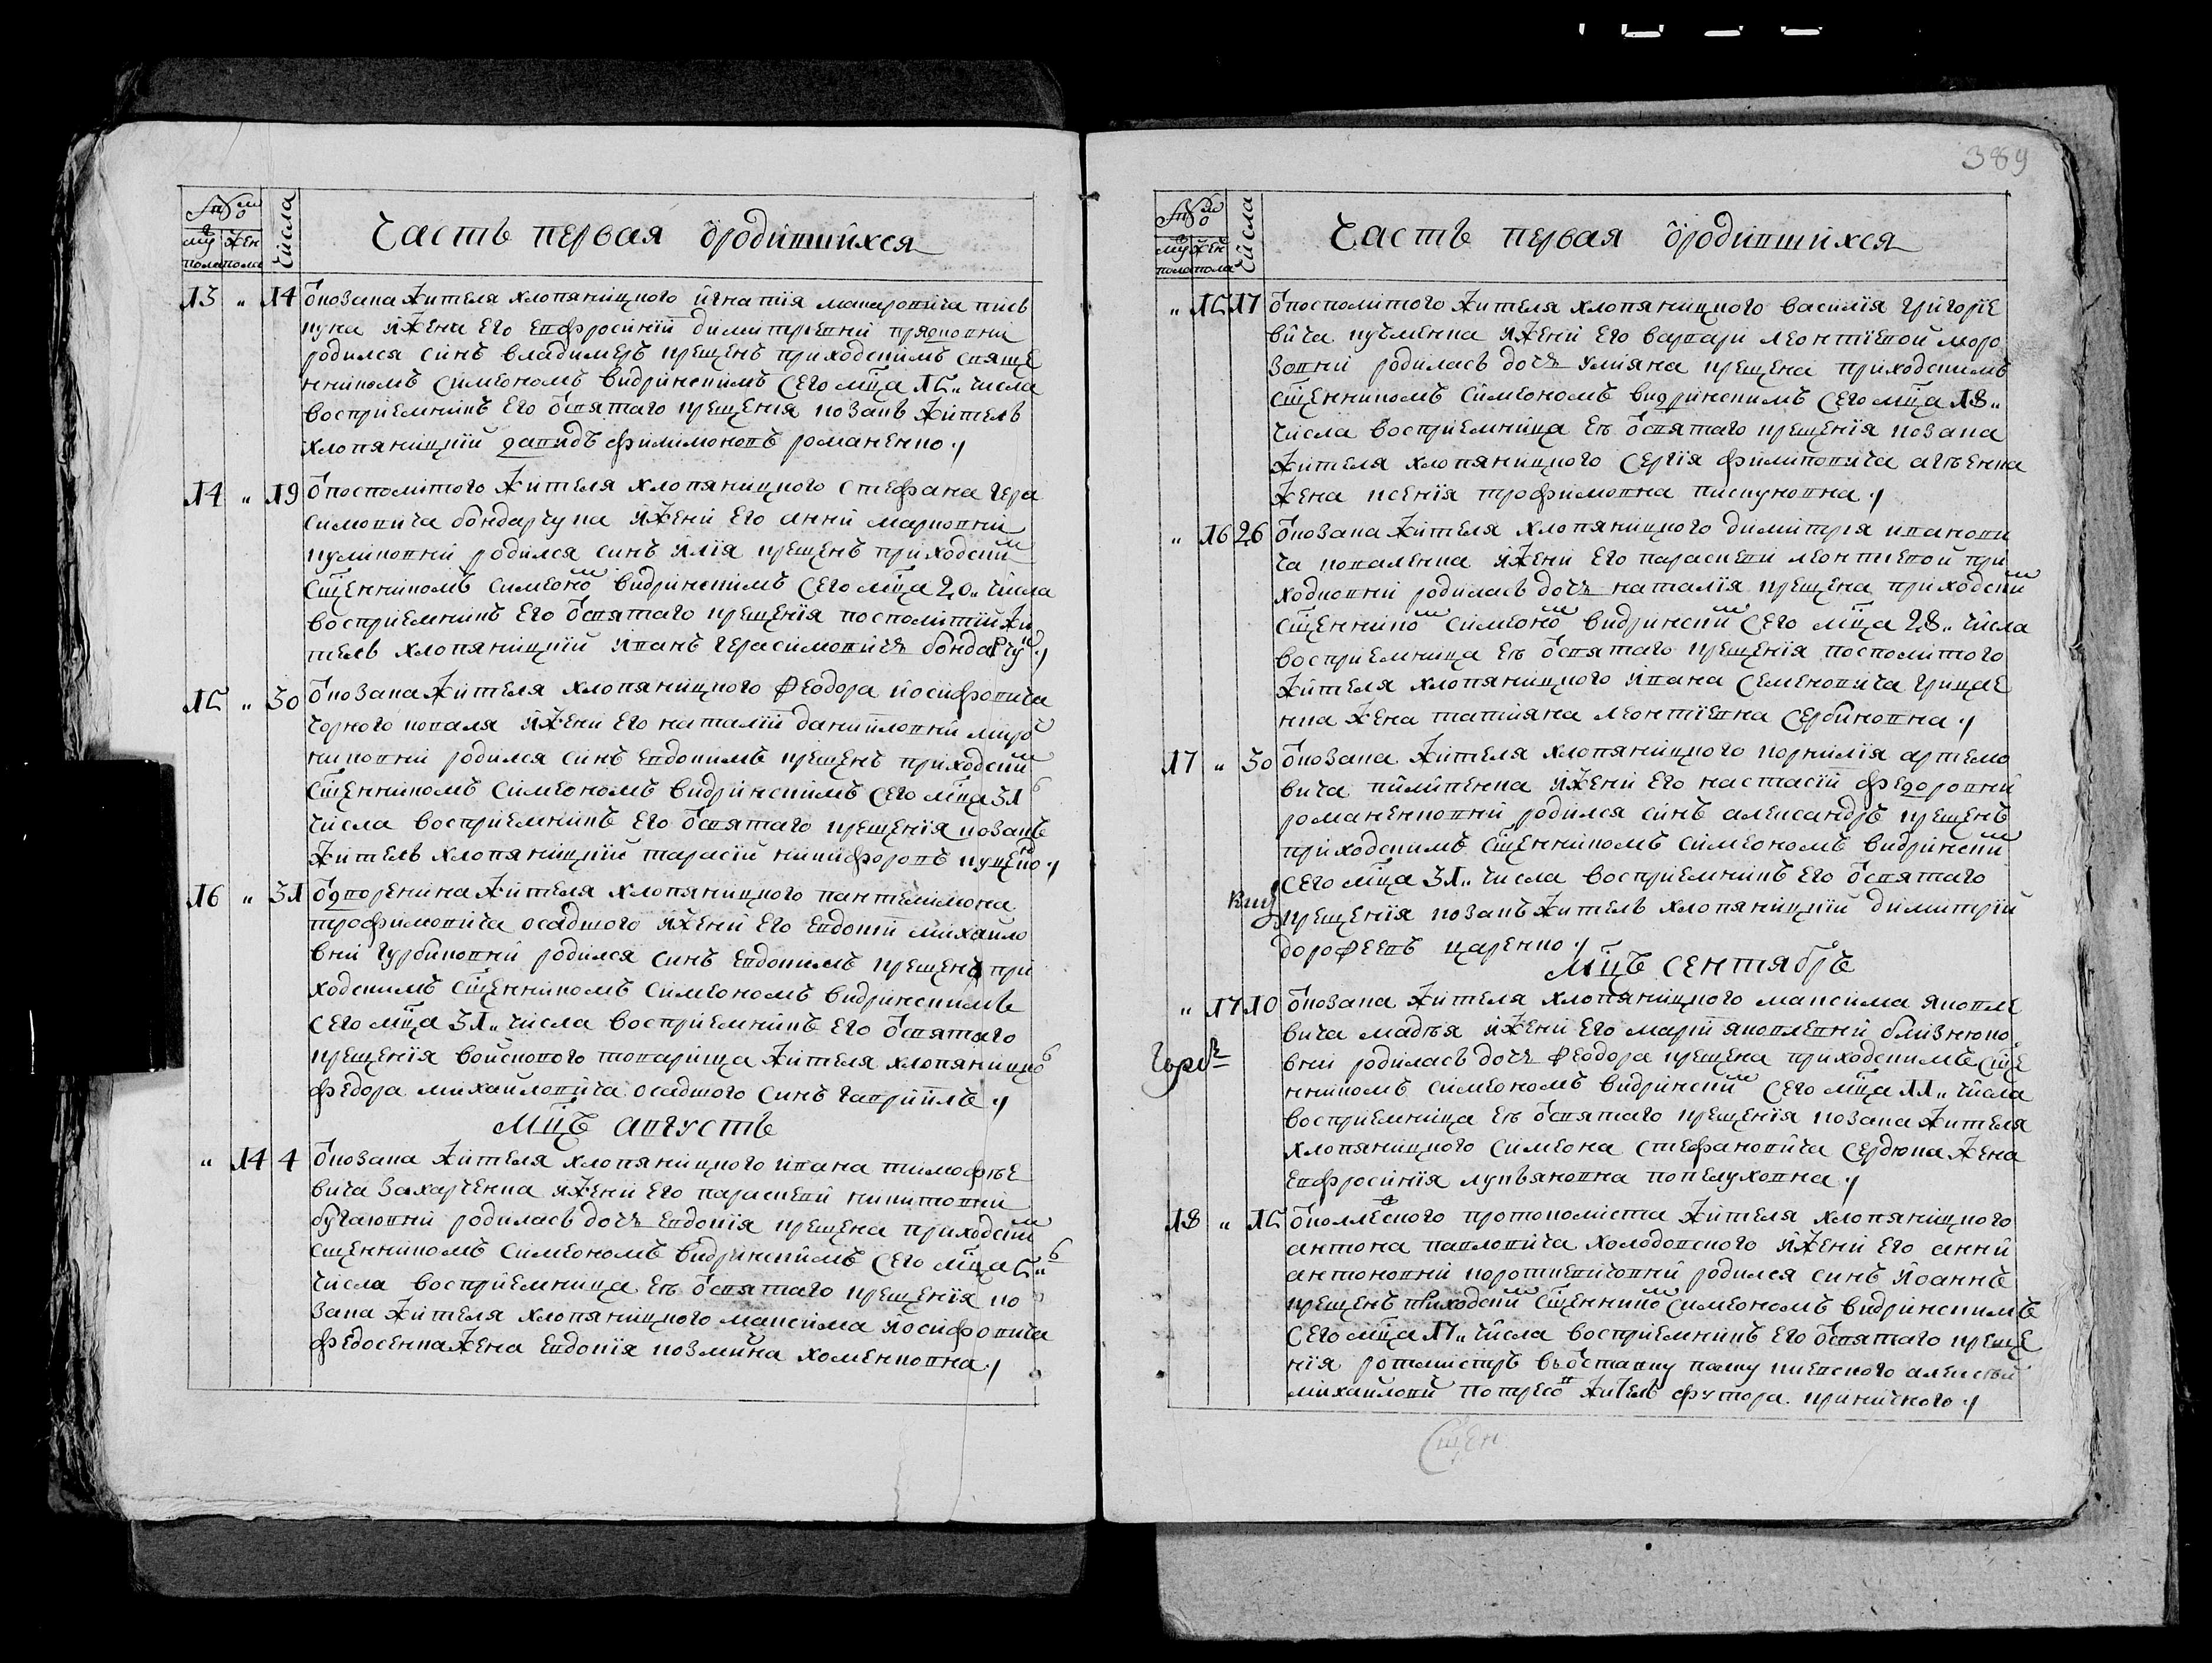 389
Часть первая ѿродившихся
муж пола
жен пола
числа
13 " 14 ѿ козака жителя хлопяницкого игнатїя макаровича пис
куна и жени его евфросинїи димитриевни прядковни
родился синъ владимеръ крещенъ приходскимъ свяще
нникомъ симеономъ видринскимъ сего мца 15 числа
восприемникъ его ѿ святаго крещенїя козакъ житель
хлопяницкїй давидъ филимоновъ романенко
14 " 19 ѿ посполитого жителя хлопяницкого стефана гера
симовича бондарчука и жени его анни марковни
куликовни родился синъ илїя крещенъ приходским
сщенникомъ симеоном видринскимъ сего мца 20 числа
восприемникъ его ѿ святаго крещенїя посполитїй жи
тель хлопяницкїй иванъ герасимовичъ бондарчук
15 " 30 ѿ козака жителя хлопяницкого Ѳеодора иосифовича
чорного коваля и жени его наталїи даниловни миро
никовни родился синъ евдокимъ крещенъ приходским
сщенникомъ симеономъ видринскимъ сего мца 31
числа восприемникъ его ѿ святаго крещенїя козакъ
житель хлопяницкїй тарасїй никифоровъ куценко
16 " 31 ѿ дворенина жителя хлопяницкого пантелимона
трофимовича осадшого и жени его евдокїи михайло
вни гурбиновни родился синъ евдокимъ крещенъ при
ходскимъ сщенникомъ симеономъ видринскимъ
сего мца 31 числа восприемникъ его ѿ святаго
крещенїя войскового товарища жителя хлопяницко
федора михайловича осадшого синъ гаврїилъ
мцъ августъ
" 14 4 ѿ козака жителя хлопяницкого ивана тимофѣе
вича захарченка и жени его параскеви никитовни
бугаювни родилась дочъ евдокїя крещена приходским
сщенникомъ симеономъ видринскимъ сего мца 5
числа восприемница ея ѿ святаго крещенїя ко
зака жителя хлопяницкого максима иосифовича
федосенка жена евдокїя козмина хоменковна
Часть первая ѿродившихся
муж пола
жен пола
числа
" 15 17 ѿ посполитого жителя хлопяницкого василїя григорїе
вича кузменка и жени его варвари леонтїевой моро
зовни родилась дочъ улияна крещена приходскимъ
сщенникомъ симеономъ видринскимъ сего мца 18
числа восприемница ея ѿ святаго крещенїя козака
жителя хлопяницкого сергїя филиповича агѣенка
жена ксенїя трофимовна пискуновна
" 16 26 ѿ козака жителя хлопяницкого димитрїя иванови
ча коваленка и жени его параскеви леонтиевой при
ходковни родилась дочъ наталїя крещена приходским
сщенником симеоном видринским сего мца 28 числа
восприемница ея ѿ святаго крещенїя посполитого
жителя хлопяницкого ивана семеновича грицае
нка жена татїяна леонтїевна сербиновна
17 " 30 ѿ козака жителя хлопяницкого корнилїя артемо
вича пилипенка и жени его настасїи федоровни
романенковни родился синъ александръ крещенъ
приходскимъ сщенникомъ симеономъ видринским
сего мца 31 числа восприемникъ его ѿ святаго
крещенїя козакъ житель хлопяницкїй димитрїй
дороѲеевъ царенко
мцъ сентябръ
" 17 10 ѿ козака жителя хлопяницкого максима яковле
вича мадѣя и жени его марїи яковлевни близнюко
вни родилась дочъ Ѳеодора крещена приходскимъ сще
нникомъ симеономъ видринским сего мца 11 числа
восприемница ея ѿ святаго крещенїя козака жителя
хлопяницкого симеона стефановича сердюка жена
евфросинїя лукъяновна попелуховна
18 " 15 ѿ коллежского протоколиста жителя хлопяницкого
антона павловича холодовского и жени его анни
антоновни коропчевичовни родился синъ иоаннъ
крещенъ приходским сщенником симеономъ видринскимъ
сего мца 17 числа восприемникъ его ѿ святаго креще
нїя ротмистръ въ ѿставку полку киевского алексѣй
михайлов потресов житель футора криничного
Сщен